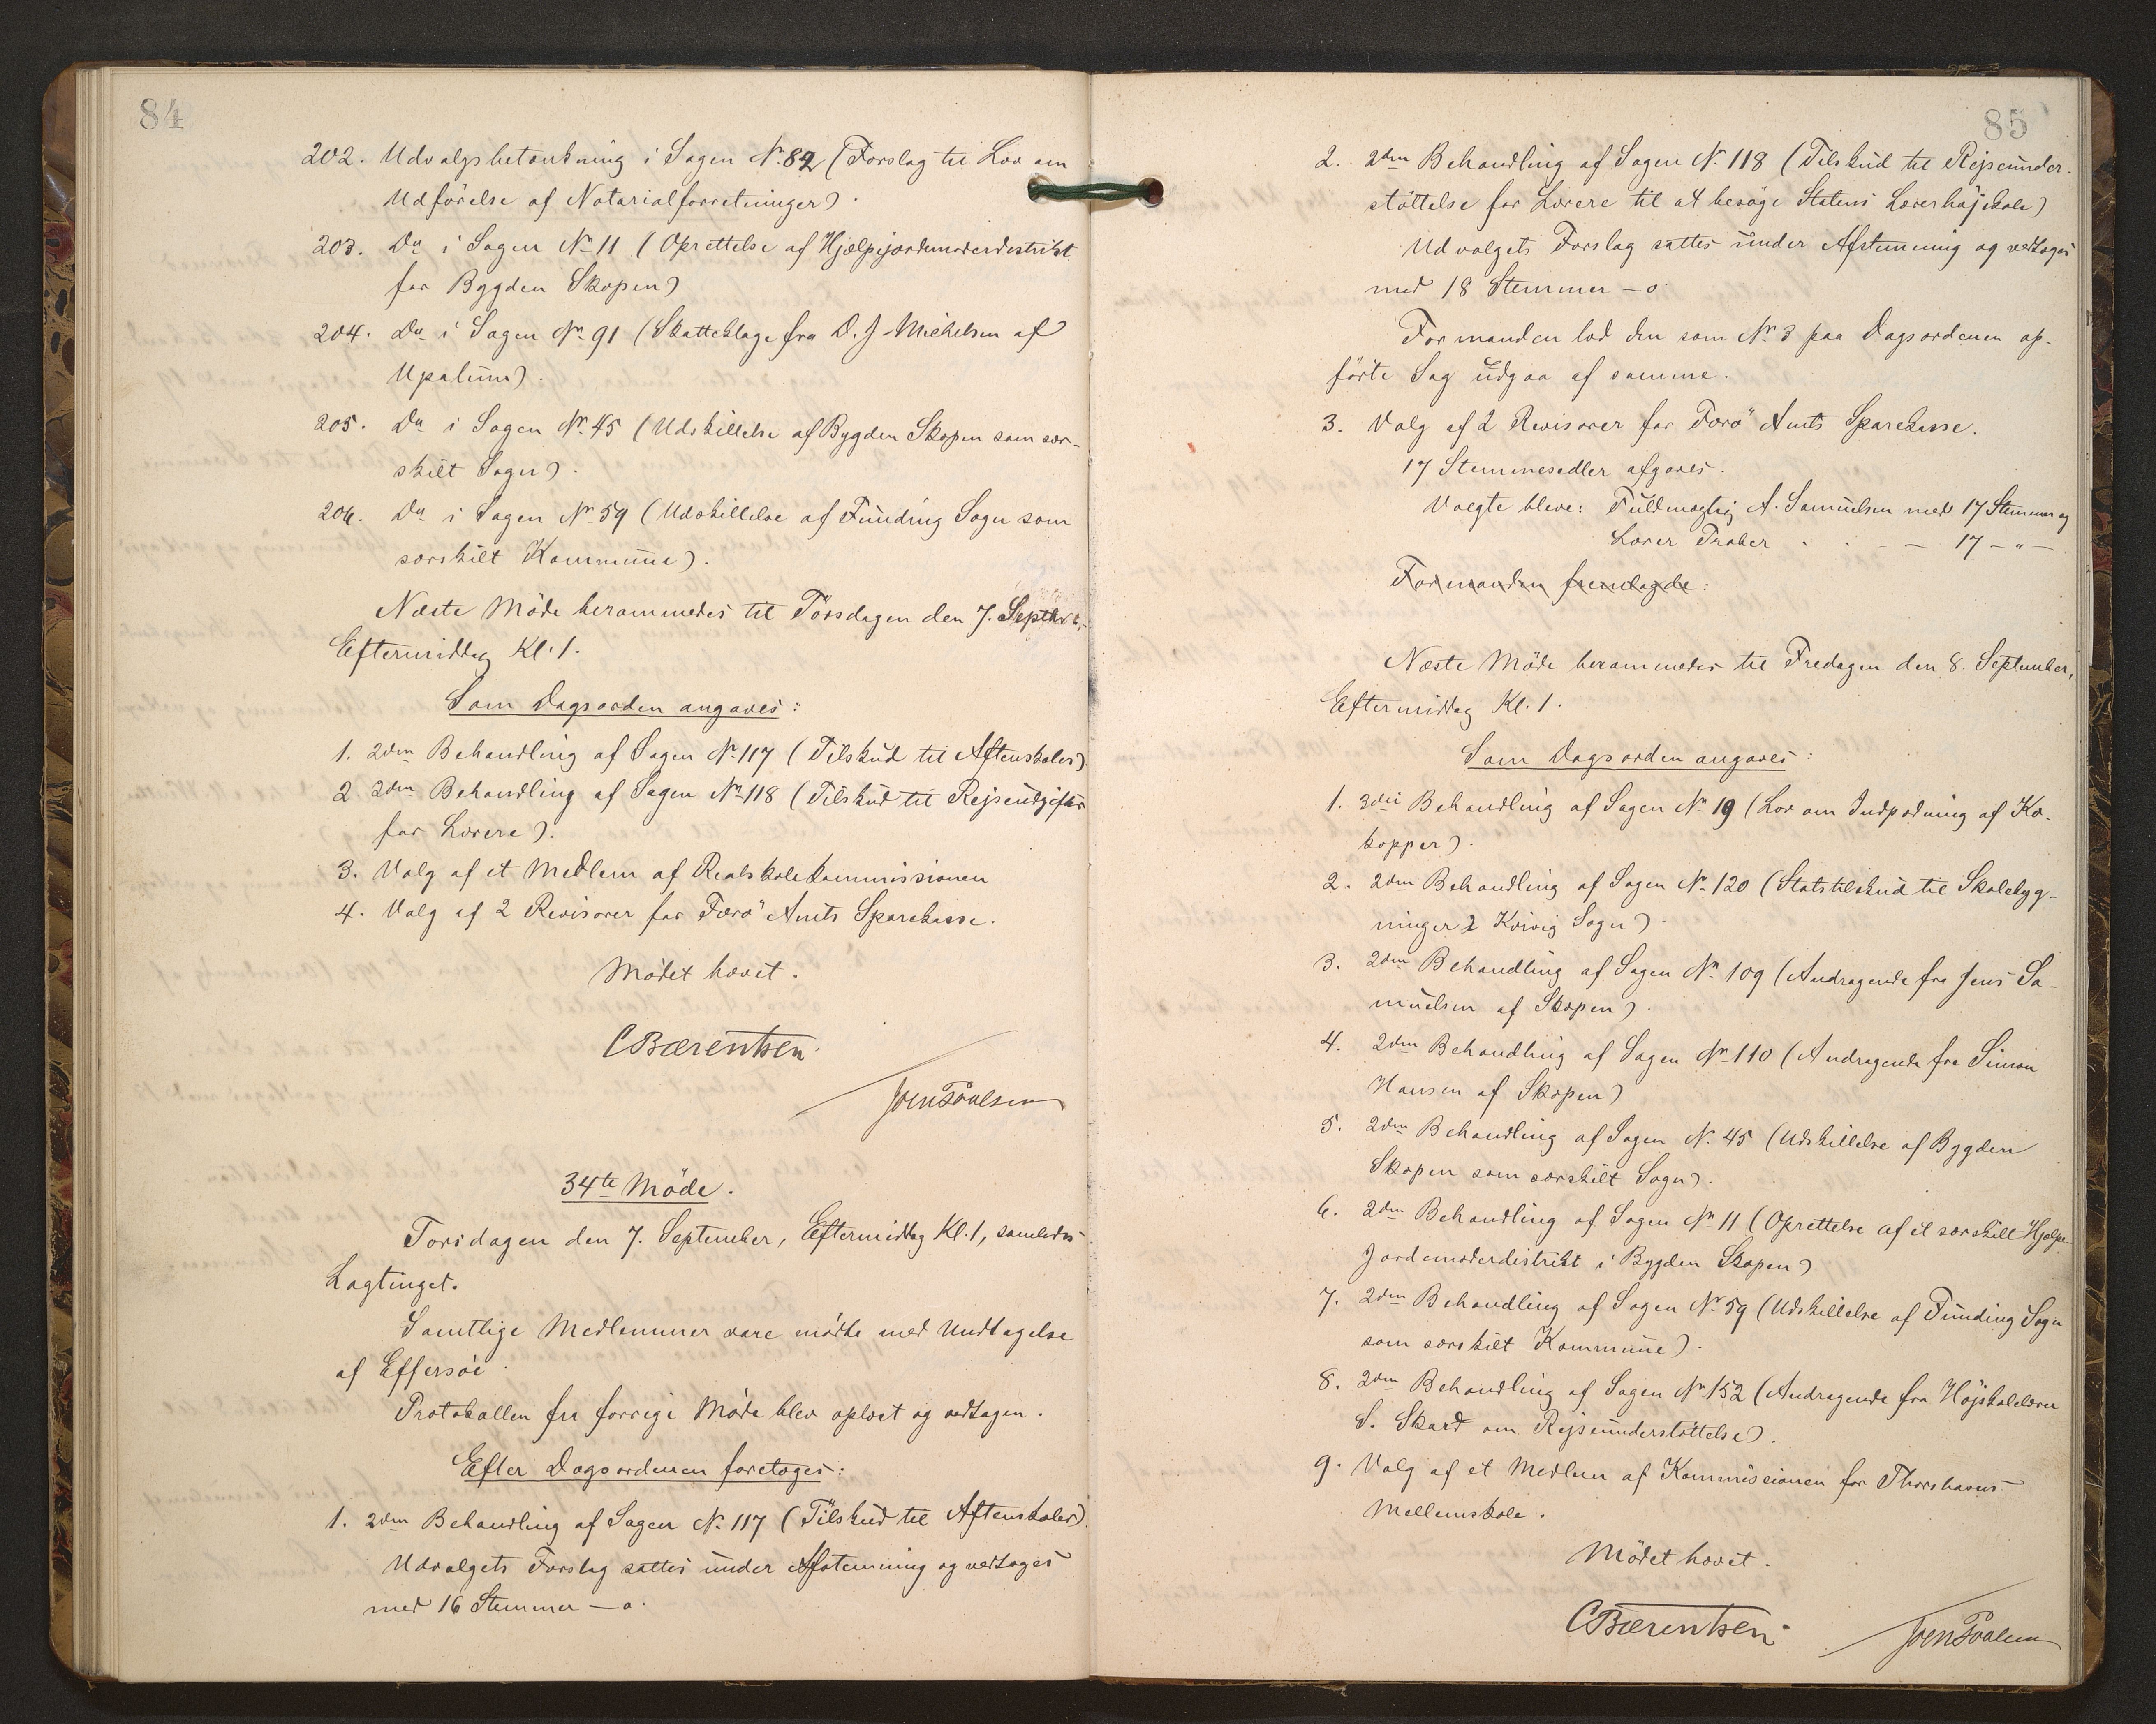 84
202. Udvalgsbetænkning i Sagen No. 82 (Forslag til Lov om
Udförelse af Notarialforretninger).
203. Do i Sagen No 11 (Oprettelse af Hjælpejordemoderdistrikt
for Bygden Skopen)
204. Do i Sagen No 91 (Skatteklage fra D. J. Michelsen af
Upalund).
205. Do i Sagen No 45 (Udskillelse af Bygden Skopen som sær-
skilt Sogn).
206. Do i Sagen No 59 (Udskillelse af Funding Sogn som
særskilt Kommune).
Næste Möde berammedes til Torsdagen den 7. Septbr.,
Eftermiddag Kl. 1.
Som Dagsorden angaves:
1. 2den Behandling af Sagen No 117 (Tilskud til Aftenskoler)
2 2den Behandling af Sagen No 118 (Tilskud til Rejseudgifter
for Lærere).
3. Valg af et Medlem af Realskolekommissionen
4. Valg af 2 Revisorer for Færö Amts Sparekasse.
Mödet hævet.
CBærentsen
Joen Poulsen
34te Möde.
Torsdagen den 7. September, Eftermiddag Kl. 1, samledes
Lagtinget.
Samtlige Medlemmer vare mödte med Undtagelse
af Effersöe.
Protokollen fra forrige Möde blev oplæst og vedtagen.
Efter Dagsordenen foretoges:
1. 2den Behandling af Sagen No. 117 (Tilskud til Aftenskoler).
Udvalgets Forslag sattes under Afstemning og vedtoges
med 16 Stemmer – o.
85
2. 2den Behandling af Sagen No 118 (Tilskud til Rejseunder-
stöttelse for Lærere til at besöge Statens Lærerhöjskole)
Udvalgets Forslag sattes under Afstemning og vedtoges
med 18 Stemmer – o.
Formanden lod den som No 3 paa Dagsordenen op-
förte Sag udgaa af samme.
3. Valg af 2 Revisorer for Færö Amts Sparekasse.
17 Stemmesedler afgaves.
Valgte bleve: Fuldmægtig A. Samuelsen med 17 Stemmer og
Lærer Traber . . – 17 – " –
Formanden fremlagde:
Næste Möde berammedes til Fredagen den 8. September,
Eftermiddag Kl. 1.
Som Dagsorden angaves:
1. 3die Behandling af Sagen No 19 (Lov om Indpodning af Ko-
kopper).
2. 2den Behandling af Sagen No 120 (Statstilskud til Skolebyg-
ninger i Kvivig Sogn)
3. 2den Behandling af Sagen No 109 (Andragende fra Jens Sa-
muelsen af Skopen).
4. 2den Behandling af Sagen No 110 (Andragende fra Simon
Hansen af Skopen)
5. 2den Behandling af Sagen No. 45 (Udskillelse af Bygden
Skopen som særskilt Sogn).
6. 2den Behandling af Sagen No 11 (Oprettelse af et særskilt Hjælpe-
Jordemoderdistrikt i Bygden Skopen)
7. 2den Behandling af Sagen No 59 (Udskillelse af Funding Sogn
som særskilt Kommune).
8. 2den Behandling af Sagen No 152 (Andragende fra Höjskolelærer
S. Skard om Rejseunderstöttelse).
9. Valg af et Medlem af Kommissionen for Thorshavns
Mellemskole.
Mödet hævet.
CBærentsen
Joen Poulsen